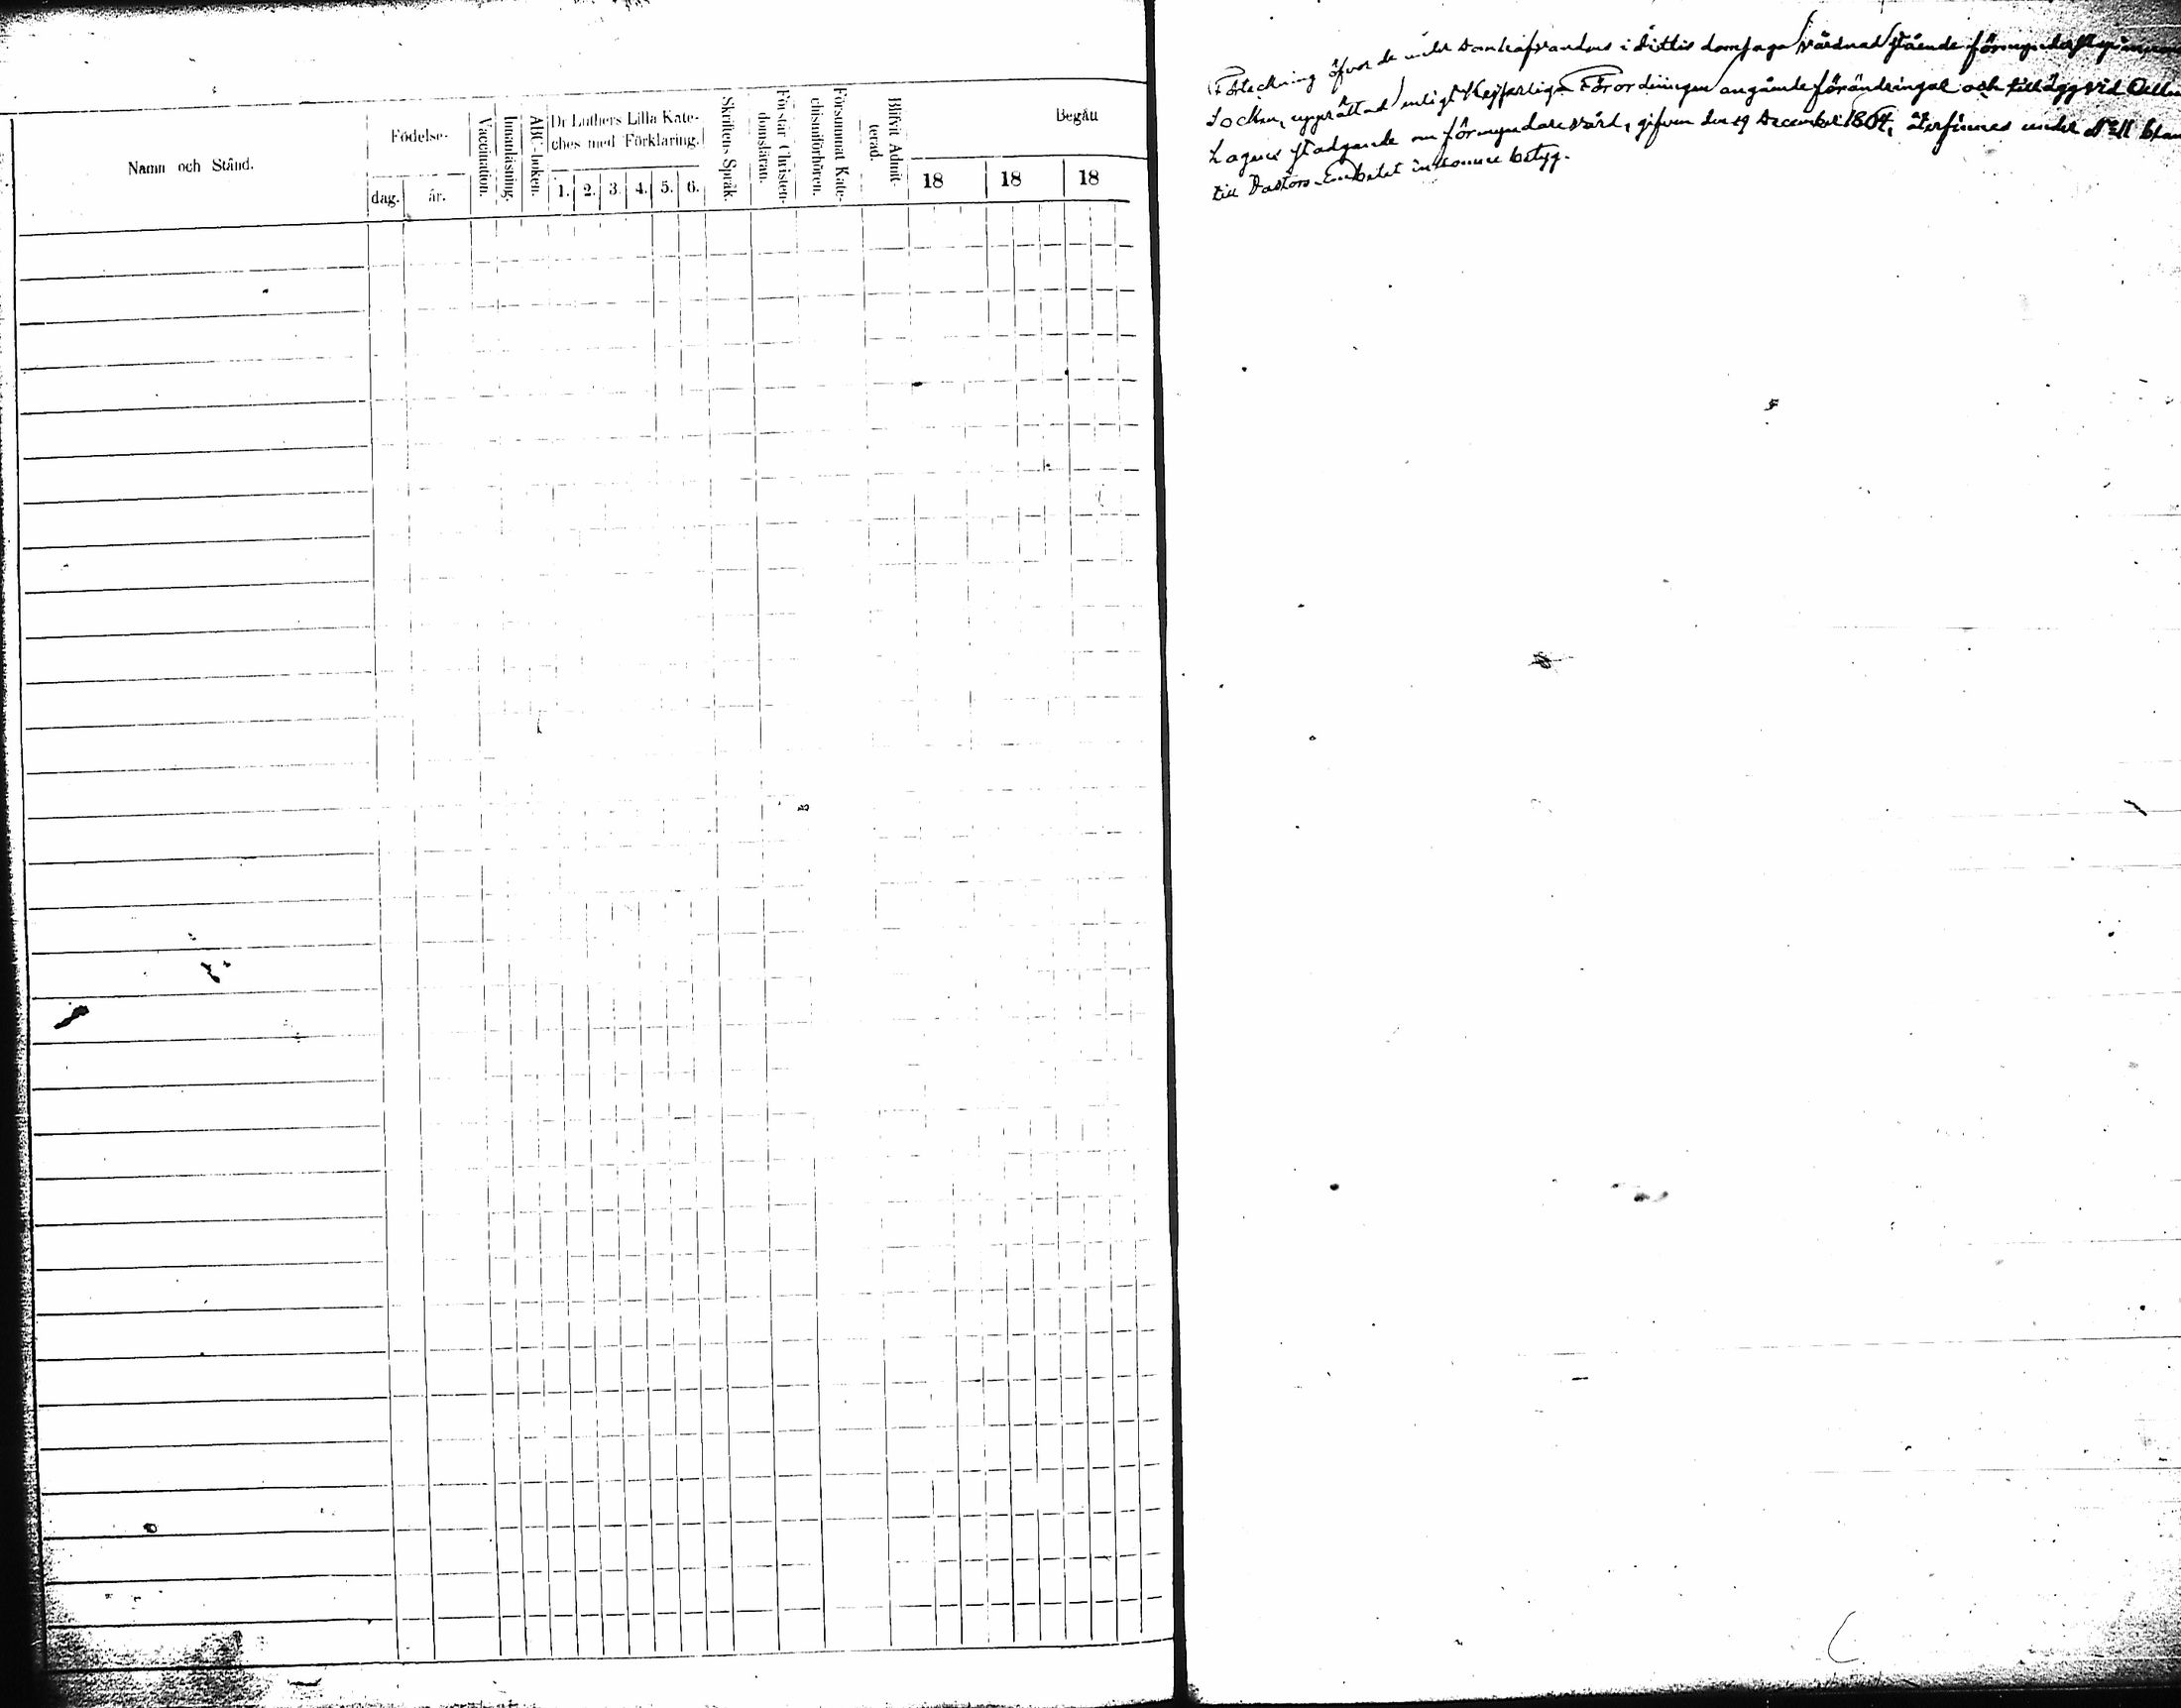 Namn och Stånd.
Födelse-
dag.
år.
Vaccination.
Innanläsning.
ABC-boken.
Dr Luthers Lilla Kate-
ches med Förklaring.
1. 2. 3. 4. 5. 6.
Skriftens Språk.
Förstår Christen-
domsläran.
Försummat Kate-
chismiförhören.
Blifvit Admit-
terad.
Begått
18 18 18
Förteckning öfver de under i domsaga vårdnad stående
Socken, upprättad enligt Kejserliga Förordningen angående förändringar och tillägg vid
Lagens stadgande om förmyndarevård, gifven den 19 December 1864, återfinnes under
till Pastors-Embetet inkomne betyg.